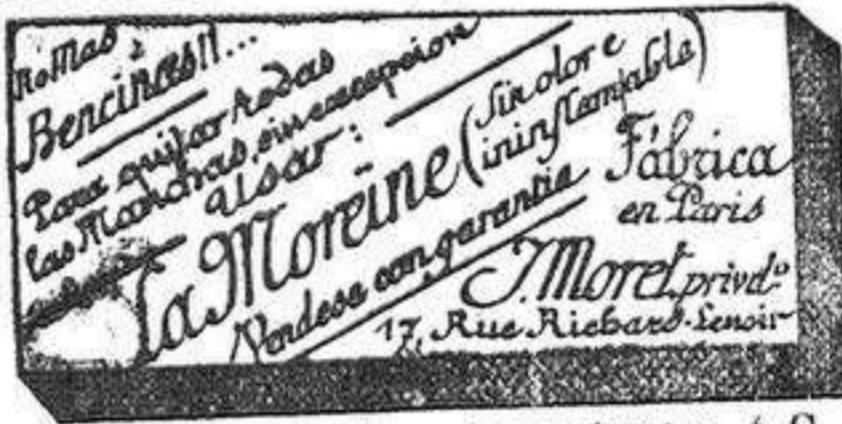 no mas
Bencinas!!...
Para quitar todas
las Manchas, sin excepcion
Usar:
La Moreïne (Sin olor e
ininflamable)
Vendese con garantia
Fábrica
en Paris
J. Moret, privdo
17, Rue Richard-Lenoir